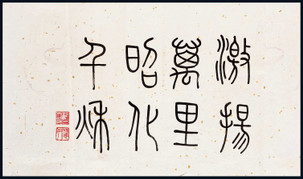 激揚
萬里
昭化
千秌